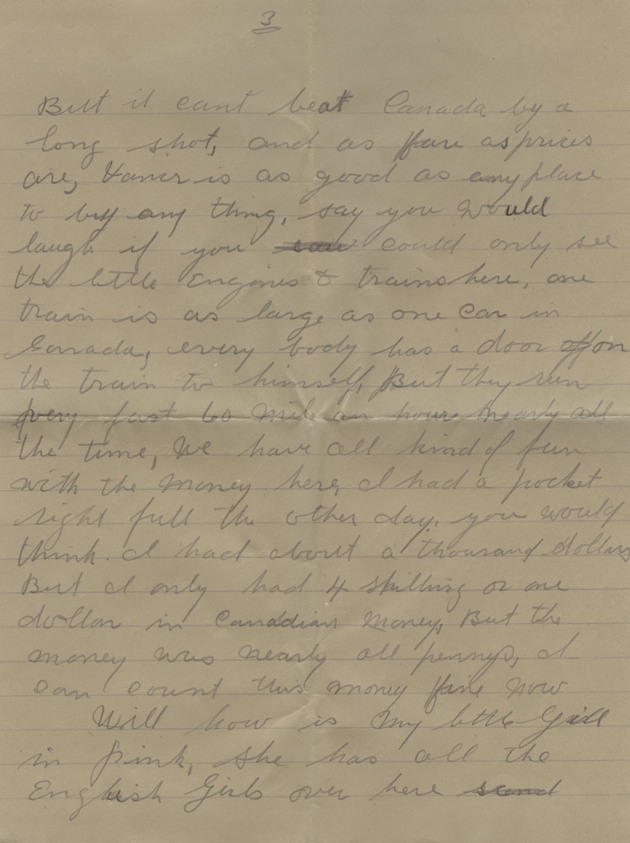 3
But it cant beat Canada by a
long shot, and as fare as prices
are, is as good as any place
to buy any thing, say you would
laugh if you could only see
the little Engines & trains here, one
train is as large as one Car in
Canada, every body has a door off on
the train to himself, But they run
very fast 60 mile an hour nearly all
the time, We have all kind of fun
with the money here, I had a pocket
right full the other day, you would
think I had about a thousand dollars
But I only had 4 shilling or one
dollar in Canadian money, But the
money was nearly all pennys, I
can count this money fine now
Will how is my little Girl
in pink, she has all the
English Girls over here